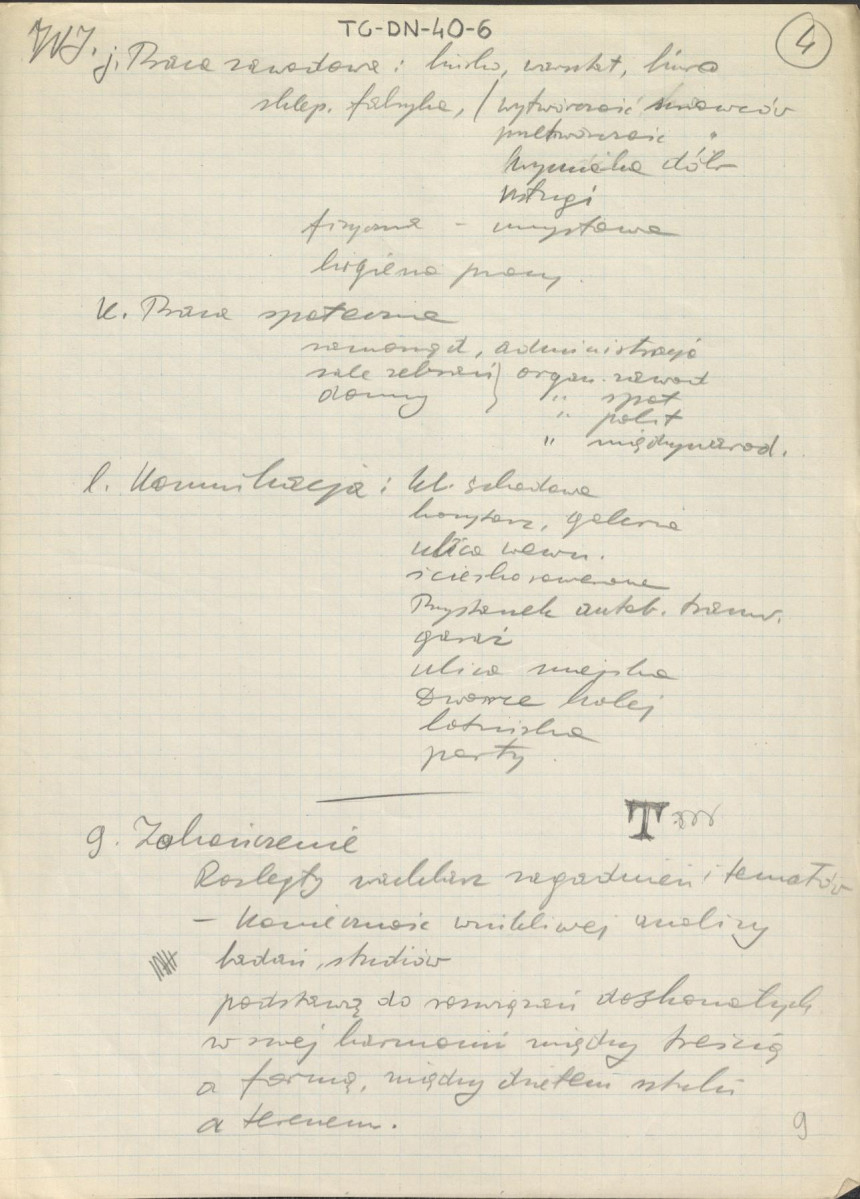 TG-DN-40-6
4
WJ. j. Praca zawodowa: biurko, warsztat, biuro
sklep, fabryka, / wytwórczość surowców
przetwórczość "
wymiana dóbr
usługi
fizyczna - umysłowa
higiena pracy.
k. Praca społeczna
samorząd, administracja
sale zebrań } organ. zawod
domy } " społ
" polit
" międzynarod.
l. Komunikacja: kl. schodowa
korytarz, galeria
ulica wewn.
ścieżka rowerowa
Przystanek autob. tramw.
garaż
ulica miejska
Dworce kolej
lotniska
porty
T
g. Zakończenie
Rozległy wachlarz zagadnień i tematów
- Konieczność wnikliwej analizy
badań, studiów
podstawą do rozwiązań doskonałych
w swej harmonii między treścią
a formą, między dziełem sztuki
a terenem.
9